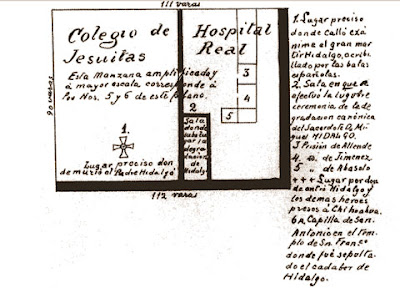 111 varas
Colegio de
Jesuitas
Esta Manzana amplificada y
á mayor escala corresponde á
los Nos. 5 y 6 de este plano.
90 varas
1.
Lugar preciso don
de murió el Padre Hidalgo
Hospital
Real
3
4
5
2
Sala
donde
tubo lu
gar la
degra
dacion
de
Hidalgo
112 varas
1. Lugar preciso
donde calló exá
nime el gran mar
tir Hidalgo, acribi
llado por las balas
españolas.
2. Sala en que se
efectuó la lugubre
ceremonia de la de
gradacion canónica
del Sacerdote Dn. Mi
guel HIDALGO.
3 Prisión de Allende
4 " de Jimenez
5 " de Abasolo
+++ Lugar por don
de entró Hidalgo y
los demas héroes
presos á Chihuahua.
6a. Capilla de San
Antonio en el tem
plo de Sn. Franco
donde fué sepulta
do el cadaber de
Hidalgo.